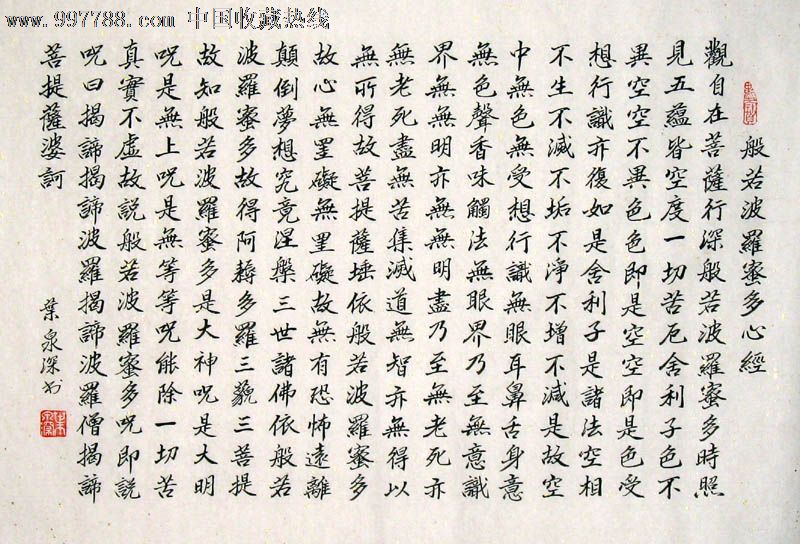 www.997788.com 中国收藏热线
般若波羅蜜多心經
觀自在菩薩行深般若波羅蜜多時照
見五蘊皆空度一切苦厄舍利子色不
異空空不異色色即是空空即是色受
想行識亦復如是舍利子是諸法空相
不生不滅不垢不淨不增不減是故空
中無色無受想行識無眼耳鼻舌身意
無色聲香味觸法無眼界乃至無意識
界無無明亦無無明盡乃至無老死亦
無老死盡無苦集滅道無智亦無得以
無所得故菩提薩埵依般若波羅蜜多
故心無罣礙無罣礙故無有恐怖遠離
顛倒夢想究竟涅槃三世諸佛依般若
波羅蜜多故得阿耨多羅三藐三菩提
故知般若波羅蜜多是大神呪是大明
呪是無上呪是無等等呪能除一切苦
真實不虛故説般若波羅蜜多呪即説
呪曰揭諦揭諦波羅揭諦波羅僧揭諦
菩提薩婆訶
葉泉深书